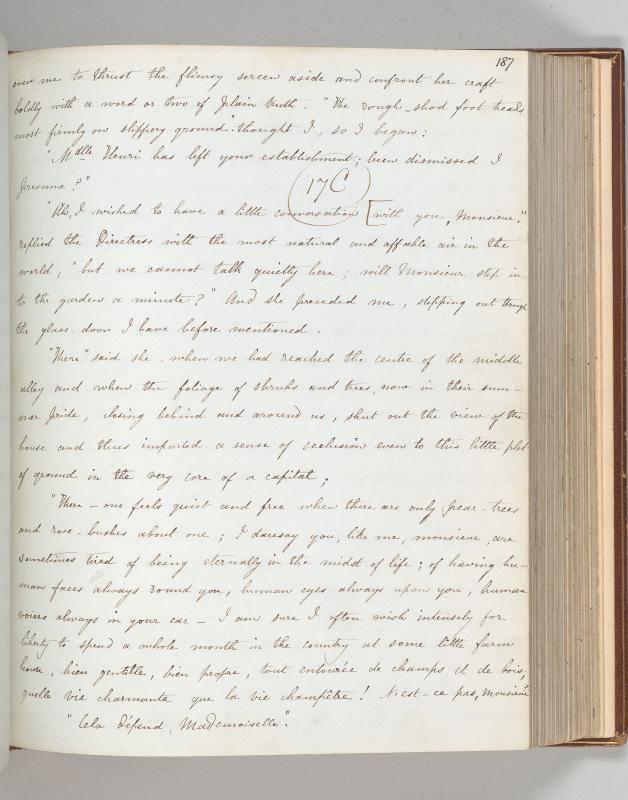 187
over me to thrust the flimsy screen aside and confront her craft
boldly with a word or two of plain truth. "The rough-shod foot treads
most firmly on slippery ground" thought I, so I began:
"Mdlle Henri has left your establishment; been dismissed I
presume?"
17 C
"Ah, I wished to have a little conversation [with you, Monsieur,"
replied the Directress with the most natural and affable air in the
world, "but we cannot talk quietly here; will Monsieur step in-
to the garden a minute?" And she preceded me, stepping out through
the glass-door I have before mentioned.
"There" said she - when we had reached the centre of the middle
alley and when the foliage of shrubs and trees, now in their sum-
mer pride, closing behind and around us, shut out the view of the
house and thus imparted a sense of seclusion even to this little plot
of ground in the very core of a capital;
"There - one feels quiet and free when there are only pear-trees
and rose-bushes about one; I daresay you, like me, monsieur, are
sometimes tired of being eternally in the midst of life; of having hu-
man faces always round you, human eyes always upon you, human
voices always in your ear - I am sure I often wish intensely for
liberty to spend a whole month in the country at some little farm
house, bien gentille, bien propre, tout entourée de champs et de bois;
quelle vie charmante que la vie champêtre! N'est-ce pas, Monsieur
"Cela dépend, Mademoiselle".